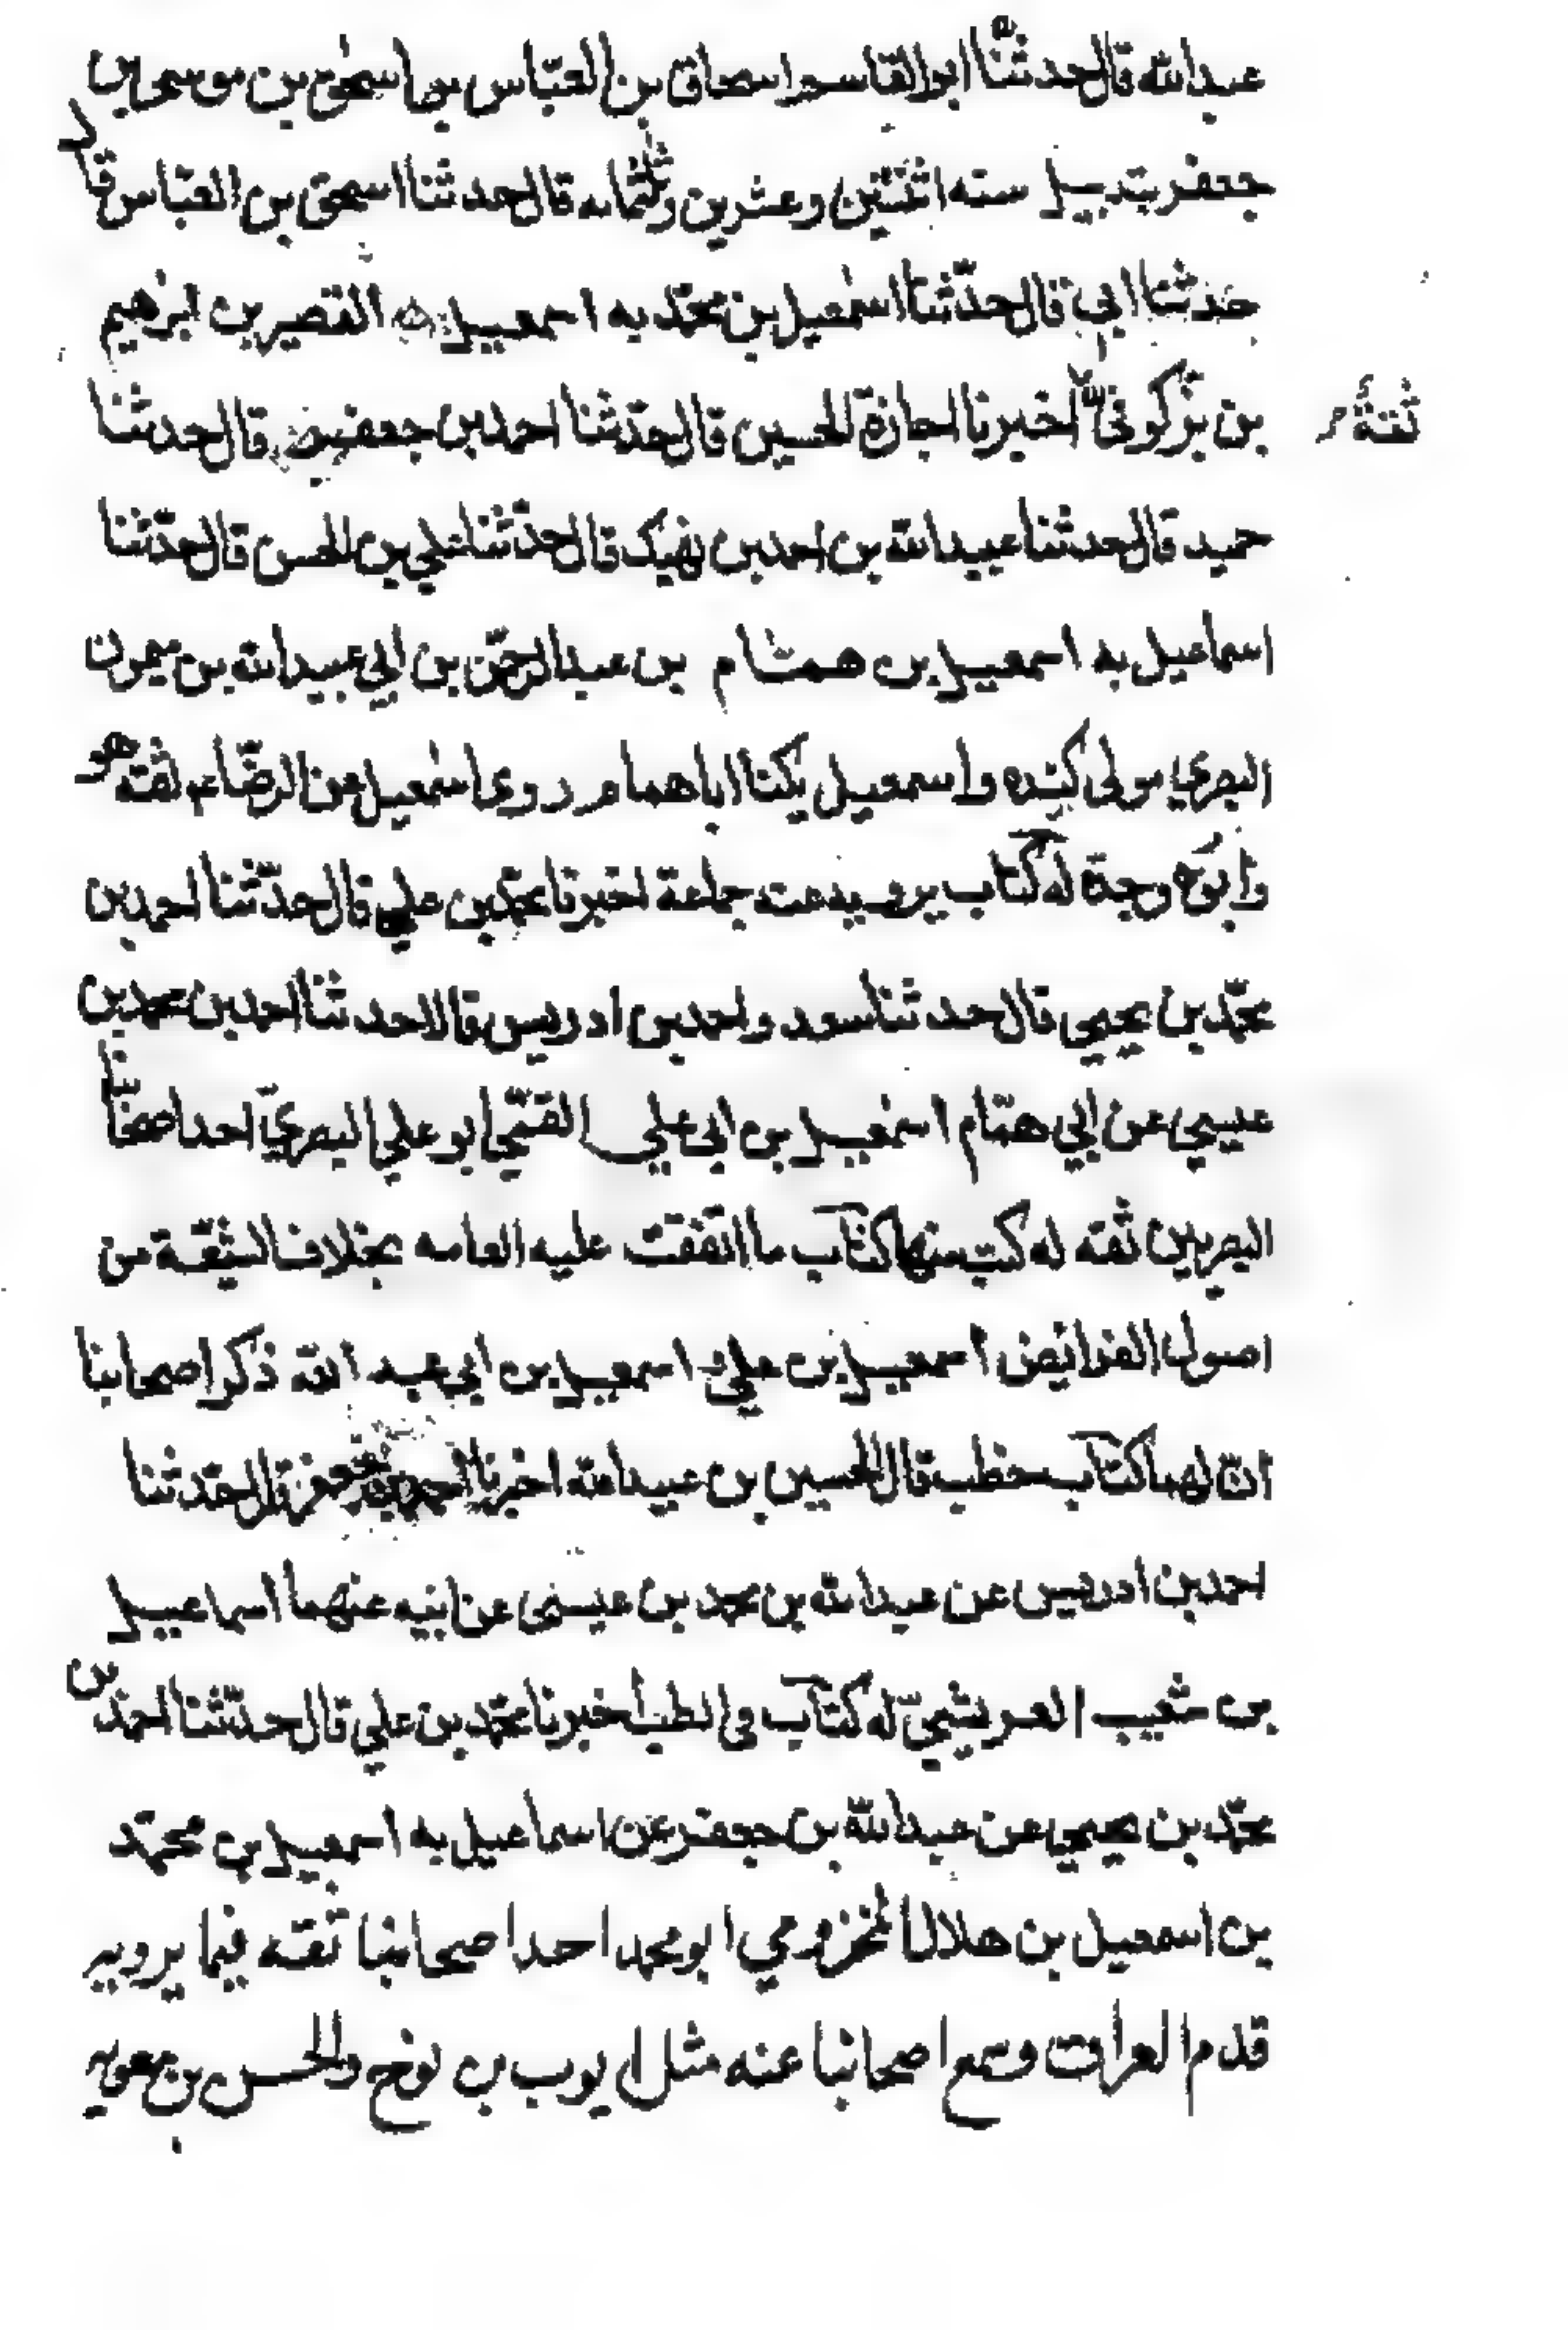 عبدالله قال حدثنا ابوالقاسم اسحاق بن العبّاس بن اسحٰق بن موسى بن
جعفر بتدبيل سنه اثنتين وعشرين وثلثمائه قال حدثنا اسحق بن العبّاس قال
حدثنا ابي قال حدّثنا اسمٰعيل بن محمّد به اسمعيل القصير بن ابرهيم
بن بزّ كوفيّ اخبرنا اجازة الحسين قال حدّثنا احمد بن جعفر قال حدثنا
ثقة م
حميد قال حدثنا عبيدالله بن احمد بن نهيك قال حدّثنا علي بن الحسن قال حدّثنا
اسماعيل به اسمعيل بن همام بن عبدالرحمّن بن ابي عبيدالله بن ميمون
البصري مولى كنده واسمعيل يكنا اباهمام روى اسمٰعيل عن الرضاء ثقة هو
وابوه وجدّه له كتاب يرويه عنه جماعة اخبرنا محمّد بن علي قال حدّثنا احمد بن
محمّد بن يحيى قال حدثنا سعد واحمد بن ادريس قالا حدثنا احمد بن محمد بن
عيسى عن ابي همّام اسمٰعيل بن ابي علي القمّي ابو علي البصريّ احد اصحابنا
البصريين ثقه له كتب منها كتاب ما اتفقت عليه العامه بخلاف الشيعة من
اصول الفرايض اسمعيل بن علي اسمعيل بن ابي عبد الله ذكر اصحابنا
انّ لهما كتاب خطب قال الحسين بن عبيدالله اخبرنا احمد بن جعفر قال حدّثنا
احمد بن ادريس عن عبدالله بن محمد بن عيسى عن ابيه عنهما اسماعيل
بن شعيب العريشيّ له كتاب في الطب اخبرنا محمّد بن علي قال حدّثنا احمد بن
محمّد بن يحيى عن عبدالله بن جعفر عن اسماعيل به اسمعيل بن محمّد
بن اسمعيل بن هلال المخزومي ابو محمد احد اصحابنا ثقه فيما يرويه
قدم العراق وسمع اصحابنا عنه مثل ايوب بن نوح والحسن بن معويه